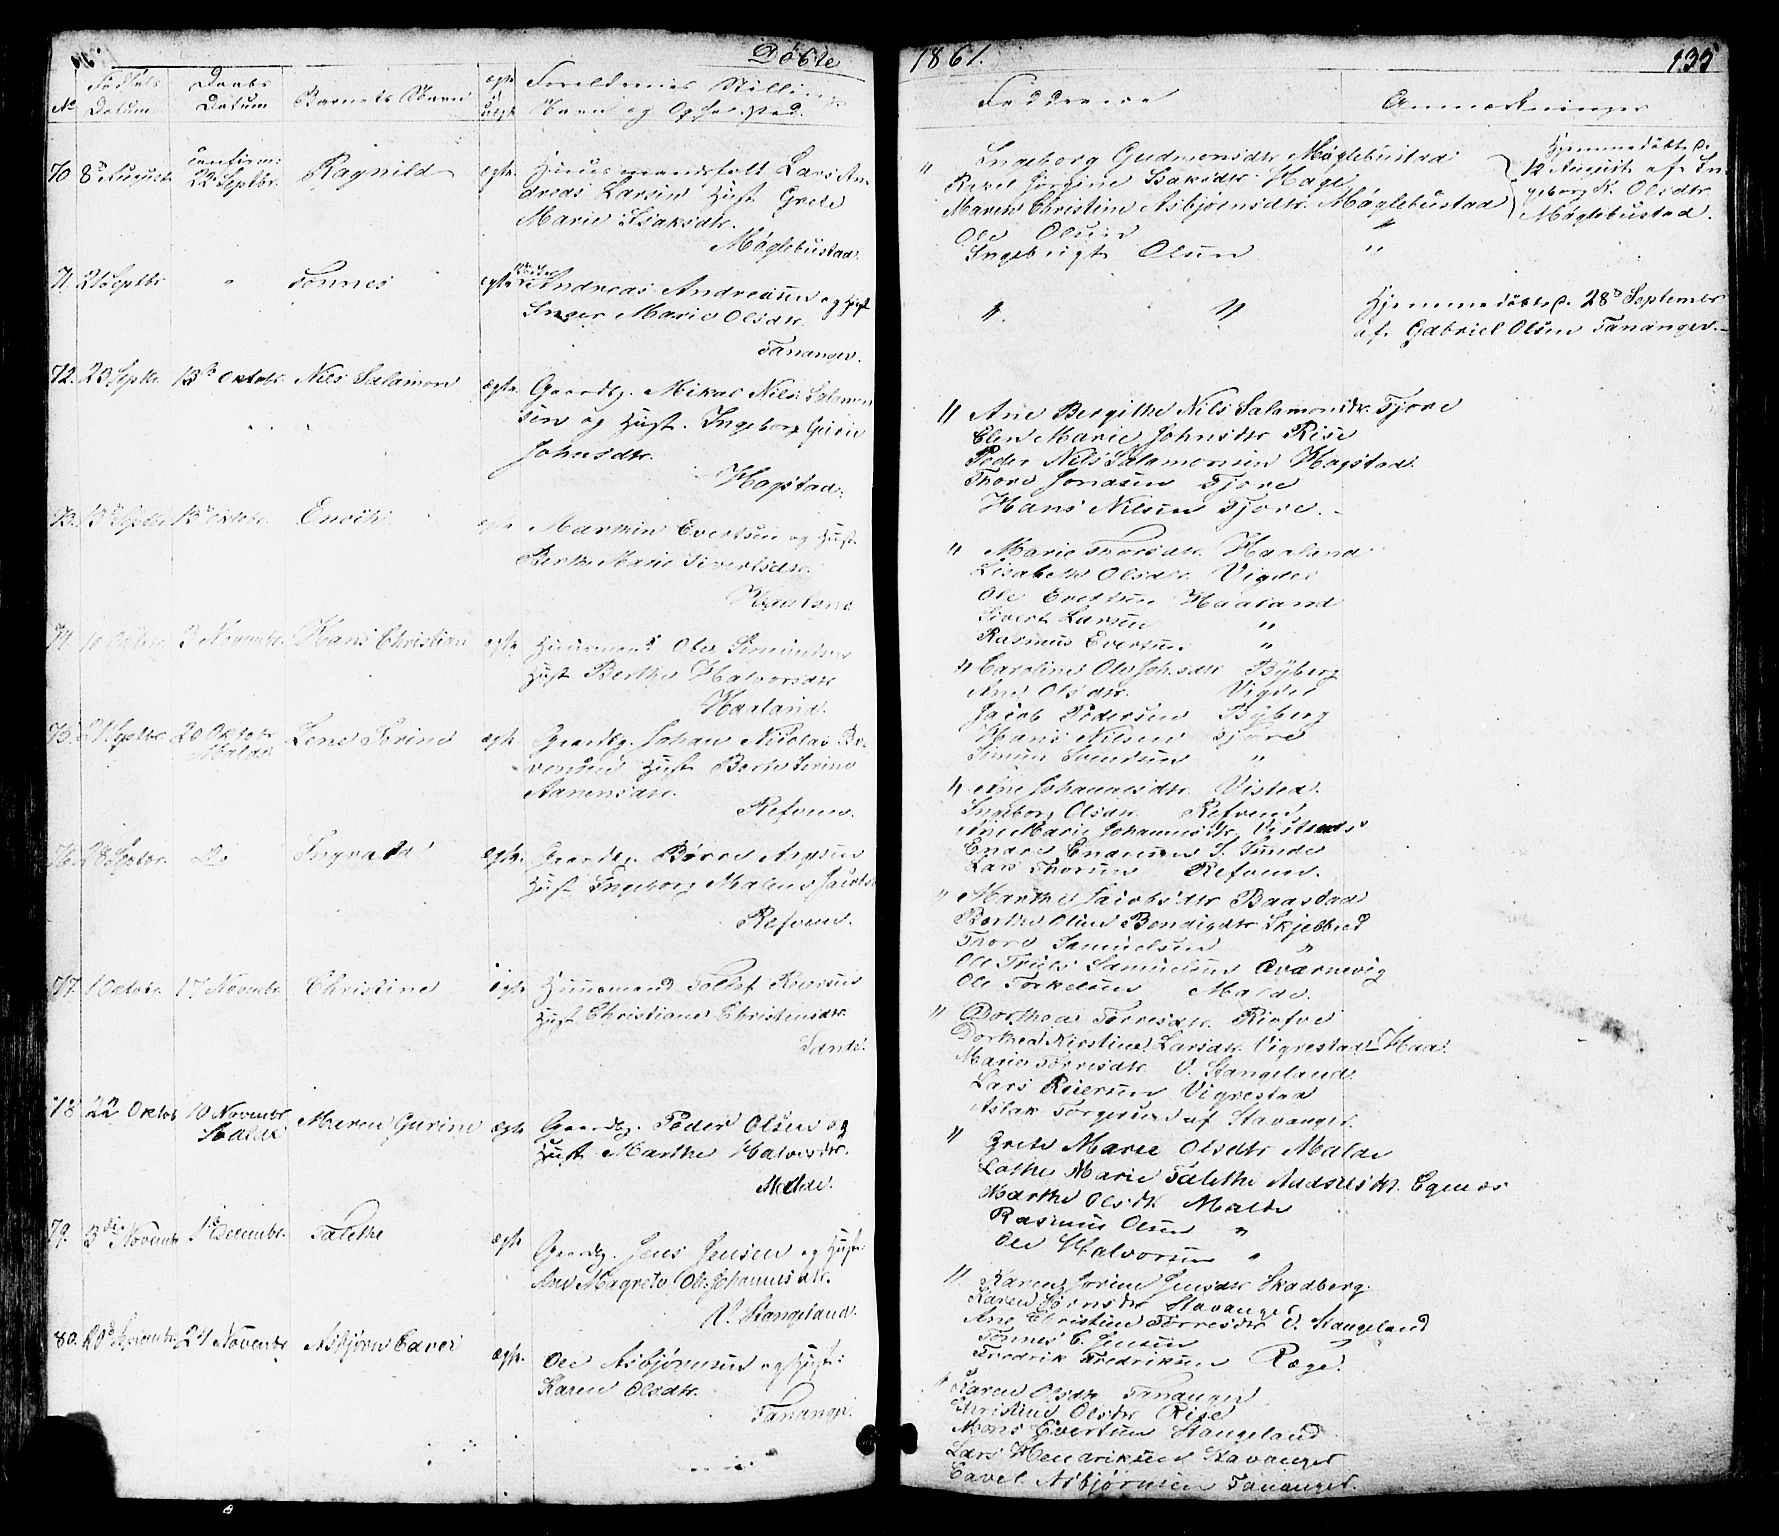 Döbte
1861.
135
No
Fødsels Datum
Daabs Datum
Barnets Navn
Forældrenes Stilling
Navn og Opholdssted.
Faddrene
Anmærkninger
70 8de August
confirm:
22 Septbr.
Ragnild
Huusmandsfolk Lars An-
dreas Larsen Hust Grete
Marie Isaksdtr.
Møglebustad.
" Ingeborg Gudmonsdtr. Møglebustad
Jørgine Isaksdtr. Hagl
Maren Christine Asbjørnsdtr. Møglebustad
Ole Olsen "
Ingebrigt Olsen "
Hjemmedöbt d.
12 August af In-
geborg N. Olsdtr.
Møglebustad.
71. 21 Septbr " Tønnes
Andreas Andreasen og Hust
Inger Marie Olsdtr.
Tananger.
" "
Hjemmedöbt d. 28de Septembr
af Gabriel Olsen Tananger.
72. 23 Septbr. 13de Oktobr. Nils Salamon
ægte. Gaardbr. Mikal Nils Salamon
sen og Hust. Ingeborg Gurie
Johnsdtr.
Hogstad.
" Ane Bergithe Nils Salamonsdtr. Tjore
Elen Marie Johnsdtr Rise
Peder Nils Salamonsen Hogstad.
Thore Jonasen Tjore
Hans Nilsen Tjore.
73. 13de Septbr 13de Oktobr. Enoch
Marthin Evertsen og Hust.
Berthe Marie Sivertsdtr.
Haaland
" Marie Thorsdtr. Haaland
Lisabeth Olsdtr. Vigdel
Ole Evertsen Haaland
Sivert Larsen "
Rasmus Evertsen "
74. 10 Oktobr. 3 Novembr. Hans Christian
ægte. Huusmand Ole Simundsen
Hust Berthe Halvorsdtr
Haaland.
" Caroline Ole Johsdtr Byberg
Ane Olsdtr. Vigdel
Jacob Pedersen Byberg
Hans Nilsen Tjore
Simun Svendsen "
75. 21 Septbr 20 Oktobr
Malde
Lene Serine
ægte. Gaardbr. Johan Nicolas
Hust Berte Serine
Aanensdtr.
Refvem.
" Ane Johannesdtr. Visted.
Ingeborg Olsdtr. Refvem
Ane Marie Johannesdtr. Vistad
Endre Endresen S. Sunde
Lars Thorsen Refvem.
76. 28 Septbr. Do Ingvald
ægte. Gaardbr. Børre
Hust Ingeborg Malene Jacobs
Refvem.
" Marthe Jacobsdtr Baastad
Berthe Oline Bendigsdtr Skjebbed
Thore Samuelsen "
Ole Truls Samuelsen Qværnevig
Ole Torkelsen Malde.
77. 1 Oktobr. 17 Novembr. Christine
ægte Huusmand Tollef Reiersen
Hust Christiane Christensdtr.
Sande.
" Dorthea Torresdtr. Riefve
Dorthea Kirstine Larsdtr. Vigrestad Haa.
Marie Torresdtr. V. Stangeland.
Lars Reiersen Vigrestad
Aslak Torgersen af Stavanger.
78. 22 Oktob 10 Novembr
Malde
Maren Gurine
ægte Gaardbr. Peder Olsen og
Hust Marthe Halvorsdtr.
Malde.
" Grete Marie Olsdtr Malde
Marie Talethe Egenæs
Marthe Olsdtr Malde
Rasmus Olsen "
Ole Halvorsen "
79. 3die Novembr 1ste Decembr. Talethe
ægte Gaardbr. Jens Jensen og Hust
Ane Magrete Ole Johannesdtr.
V. Stangeland.
" Karen Serine Jensdtr Skadberg.
Karen Stavanger
Ane Christine Torresdtr V. Stangeland
Tønnes C. Jensen "
Fredrik Fredriksen Ræge.
80. 24 Novembr Asbjørn Cavel
ægte. Ole Asbjørnsen og Hust:
Karen Olsdtr.
Tananger.
" Karen Olsdtr Tananger
Christine Olsdtr Rise
Mons Evertsen Stangeland
Lars Hendriksen Stavanger
Cavel Asbjørnsen Tananger.